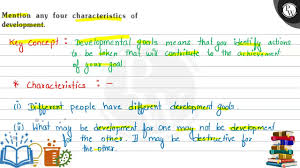 Mention any four characteristics of
development.
Key Concept : Developmental goals means that you identify actions
to be taken that will contribute to the achievement
of your goal
* Characteristics : -
(i) Different people have different development goals.
(ii) What may be development for one may not be development
for the other. It may be destructive for
the other.